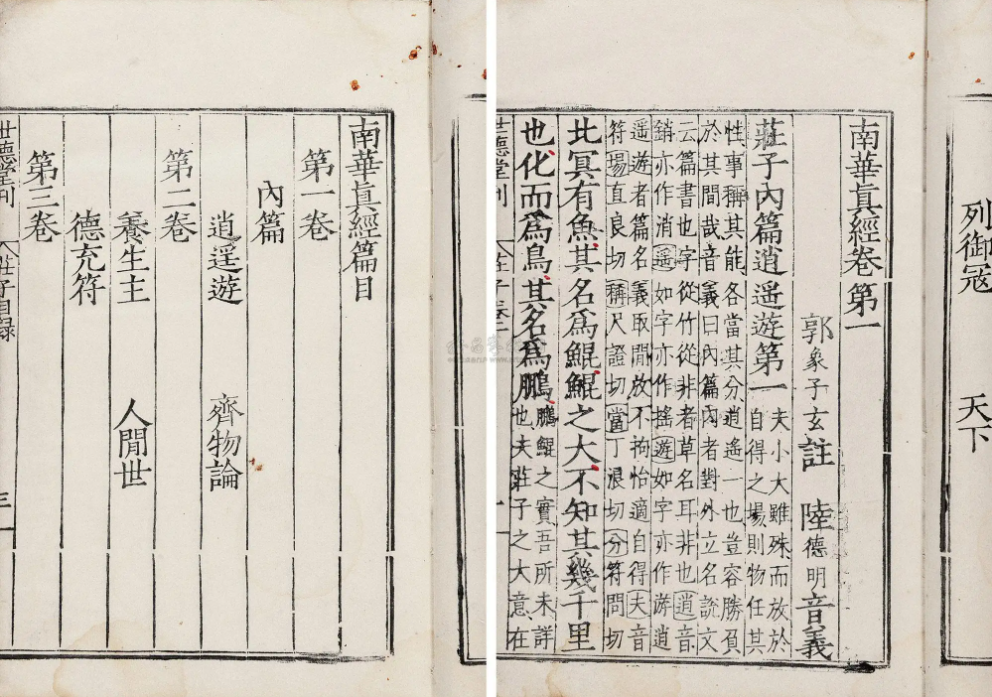 南華眞經篇目
第一卷
內篇
逍遥遊 齊物論
第二卷
養生主 人閒世
德充符
第三卷
世德堂刊 莊子目錄 三
列御寇 天下
南華眞經卷第一
郭象子玄註 陸德明音義
莊子內篇逍遥遊第一 夫小大雖殊而放於
自得之場則物任其
性事稱其能各當其分逍遥一也豈容勝負
於其間哉音義曰內篇內者對外立名説文
云篇書也字從竹從非者草名耳非也逍音
銷亦作消遥如字亦作搖遊如字亦作游逍
遥遊者篇名義取閒放不拘怡適自得夫音
符場直良切稱尺證切當丁浪切分符問切
北冥有魚其名爲鯤鯤之大不知其幾千里
也化而爲鳥其名爲鵬 鵬鯤之實吾所未詳
也夫莊子之大意在
世德堂刊 莊子卷一 一